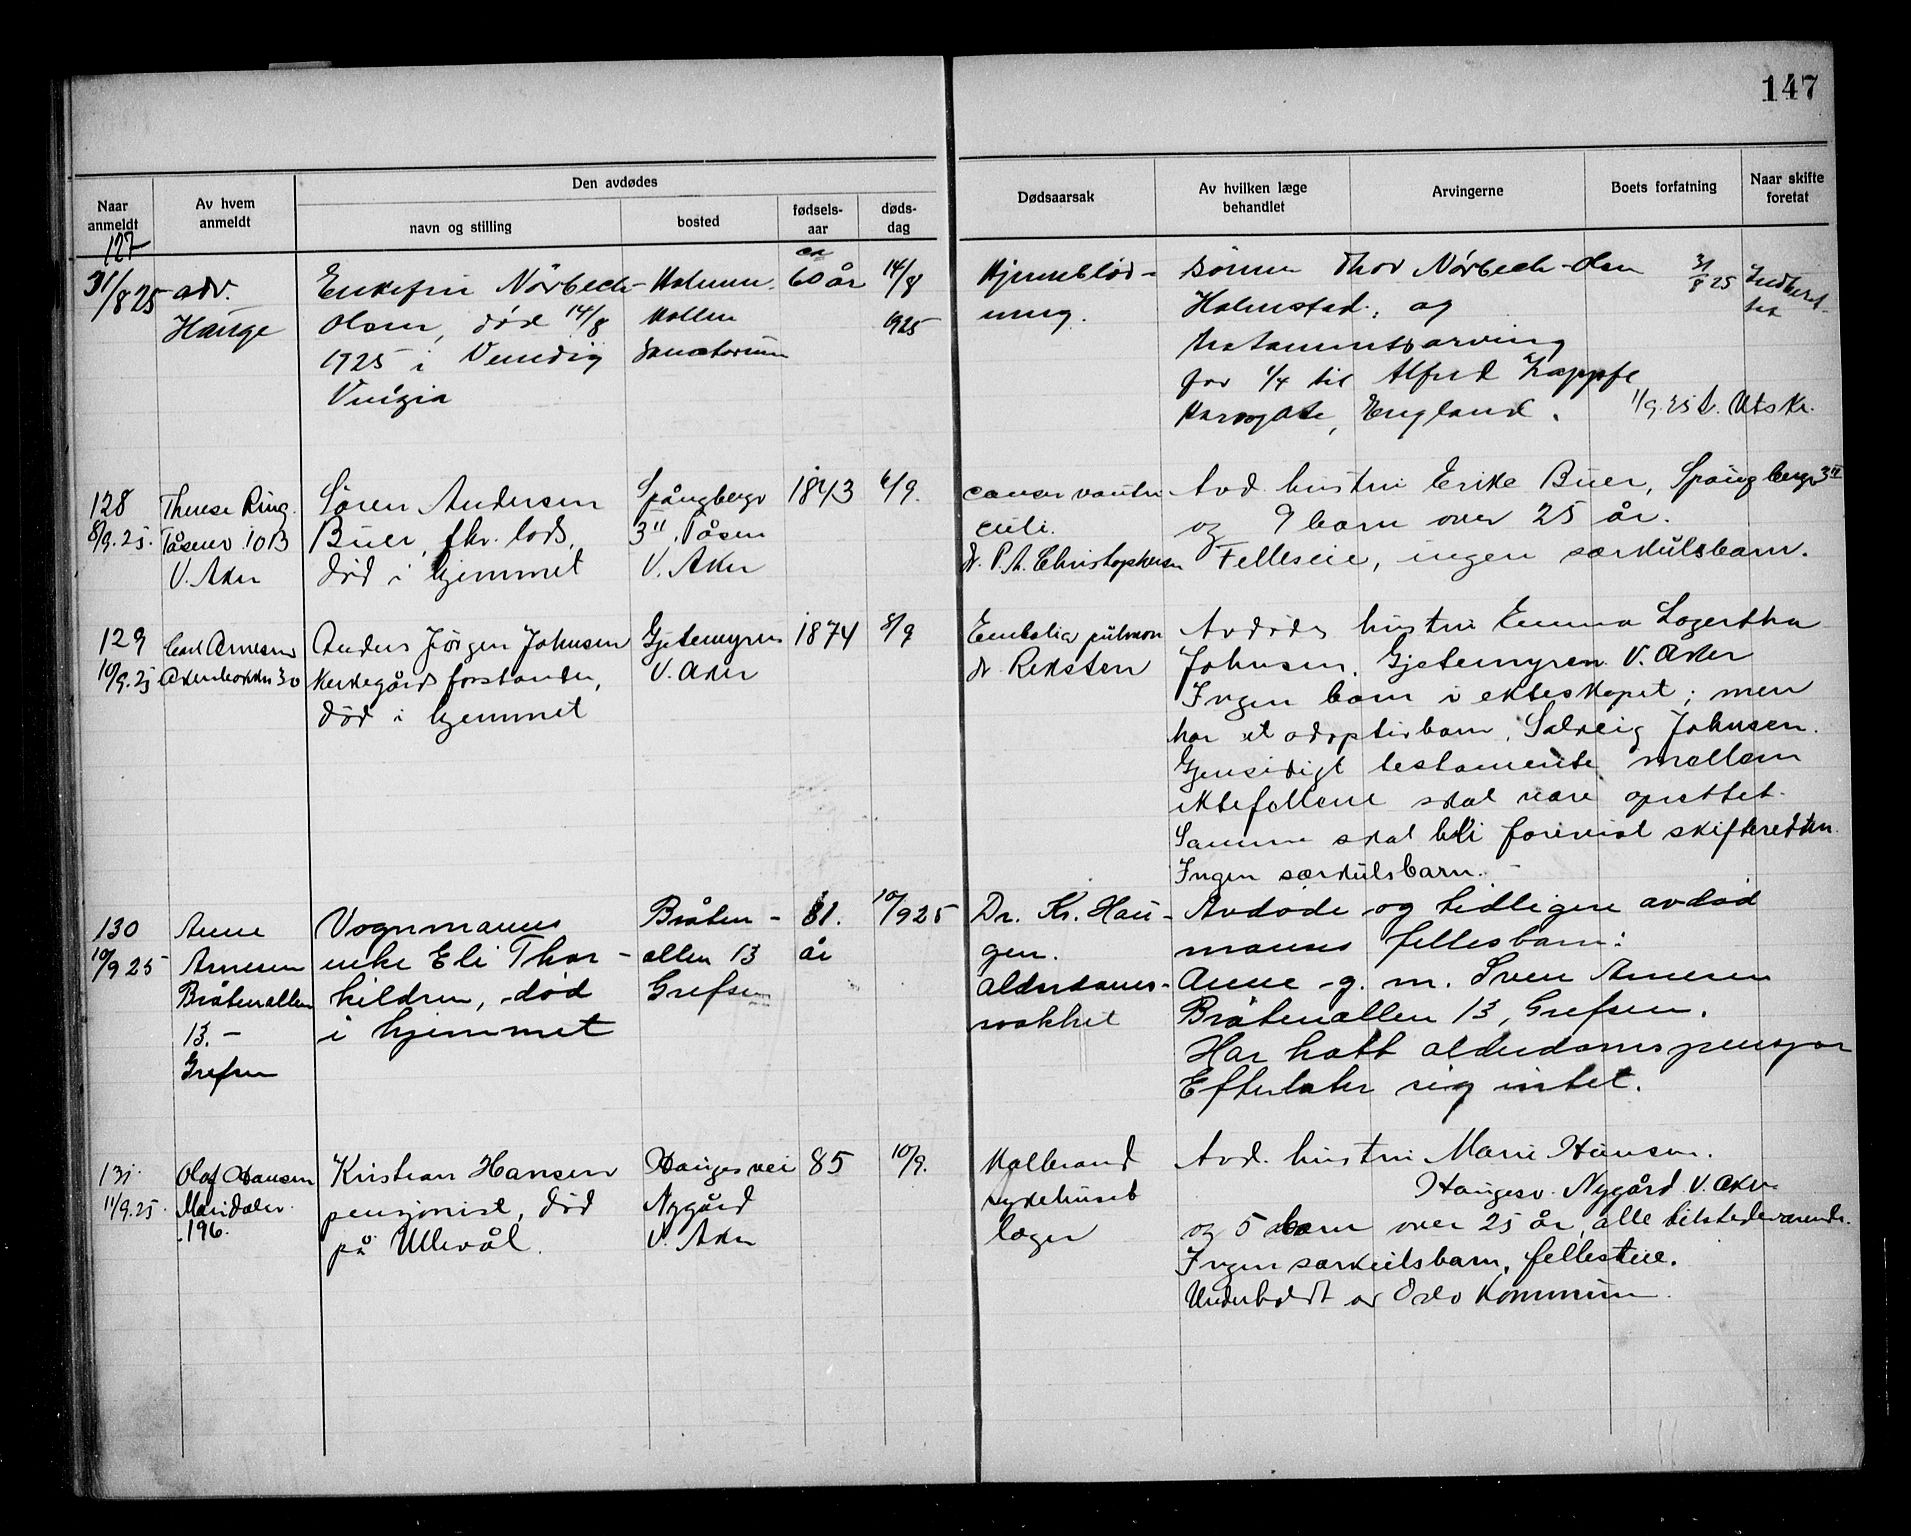 147
Naar anmeldt
Av hvem anmeldt
Den avdødes
navn og stilling
bosted
fødsels-aar
døds-dag
Dødsaarsak
Av hvilken læge behandlet
Arvingerne
Boets forfatning
Naar skifte foretat
127
31/8 25
adv.
Hauge
Enkefru Nørbech-
Olsen, død 14/8
1925 i Venedig
Holmen
Kollen
Sanatorium
ca
60 år
14/8
1925
Hjerneblød-
ning.
Sønnen Thor Nørbech-Olsen
Halmstad, og
testamentsarving
for 1/4 til Alfred
Harrogate, England.
31/8 25
11/9.25 Utskr.
128
8/9.25.
Therese Ring.
Tåsenv. 10B
V. Aker
Søren Andersen
Buer, fhv. lods,
død i hjemmet
Spångbergv
3II, Tåsen
V. Aker
1843
6/9.
cancer ventri
culi.
dr. P. A. Christophersen
Avd. hustru Erike Buer, Spångbergv 3II
og 9 barn over 25 år.
Felleseie, ingen særkulsbarn.
129
10/9.25
Carl Arnesen
Akersbakken 30
Anders Jørgen Johnsen
Kirkegårdsforstander,
død i hjemmet
Gjetemyren
V. Aker
1874
8/9
Embolia pulmon
dr. Reksten
Avdødes hustru Emma Logertha
Johnsen, Gjetemyren V. Aker
Ingen barn i ekteskapet; men
har et adoptivbarn, Solveig Johnsen.
Gjensidigt testamente mellem
ektefellene skal være oprettet.
Samme skal bli forevist skifteretten.
Ingen særkulsbarn.
130
10/9 25
Anne
Arnesen
Bråtenalleen
13.-
Grefsen
Vognmanns
enke Eli Thor-
kildsen, død
i hjemmet
Bråten-
alleen 13
Grefsen
81.
år
10/9 25
Dr. Kr. Hau-
gen.
Alderdoms-
svakhet
Avdøde og tidligere avdød
manns fellesbarn:
Anne g. m. Sven Arnesen
Bråtenalleen 13, Grefsen.
Har hatt alderdomspensjon
Efterlater sig intet.
131
11/9.25.
Olaf Hansen
Maridalsv.
196.
Kristian Hansen
pensjonist, død
på Ullevål.
Haugesvei
Nygård
V. Aker
85
10/9.
Kolbrand
sykehusets
læger
Avd. hustru Marie Hansen.
Haugesv. Nygård V. Aker
og 5 barn over 25 år, alle tilstedeværende.
Ingen særkulsbarn, felleseie.
Underholdt av Oslo Kommune.